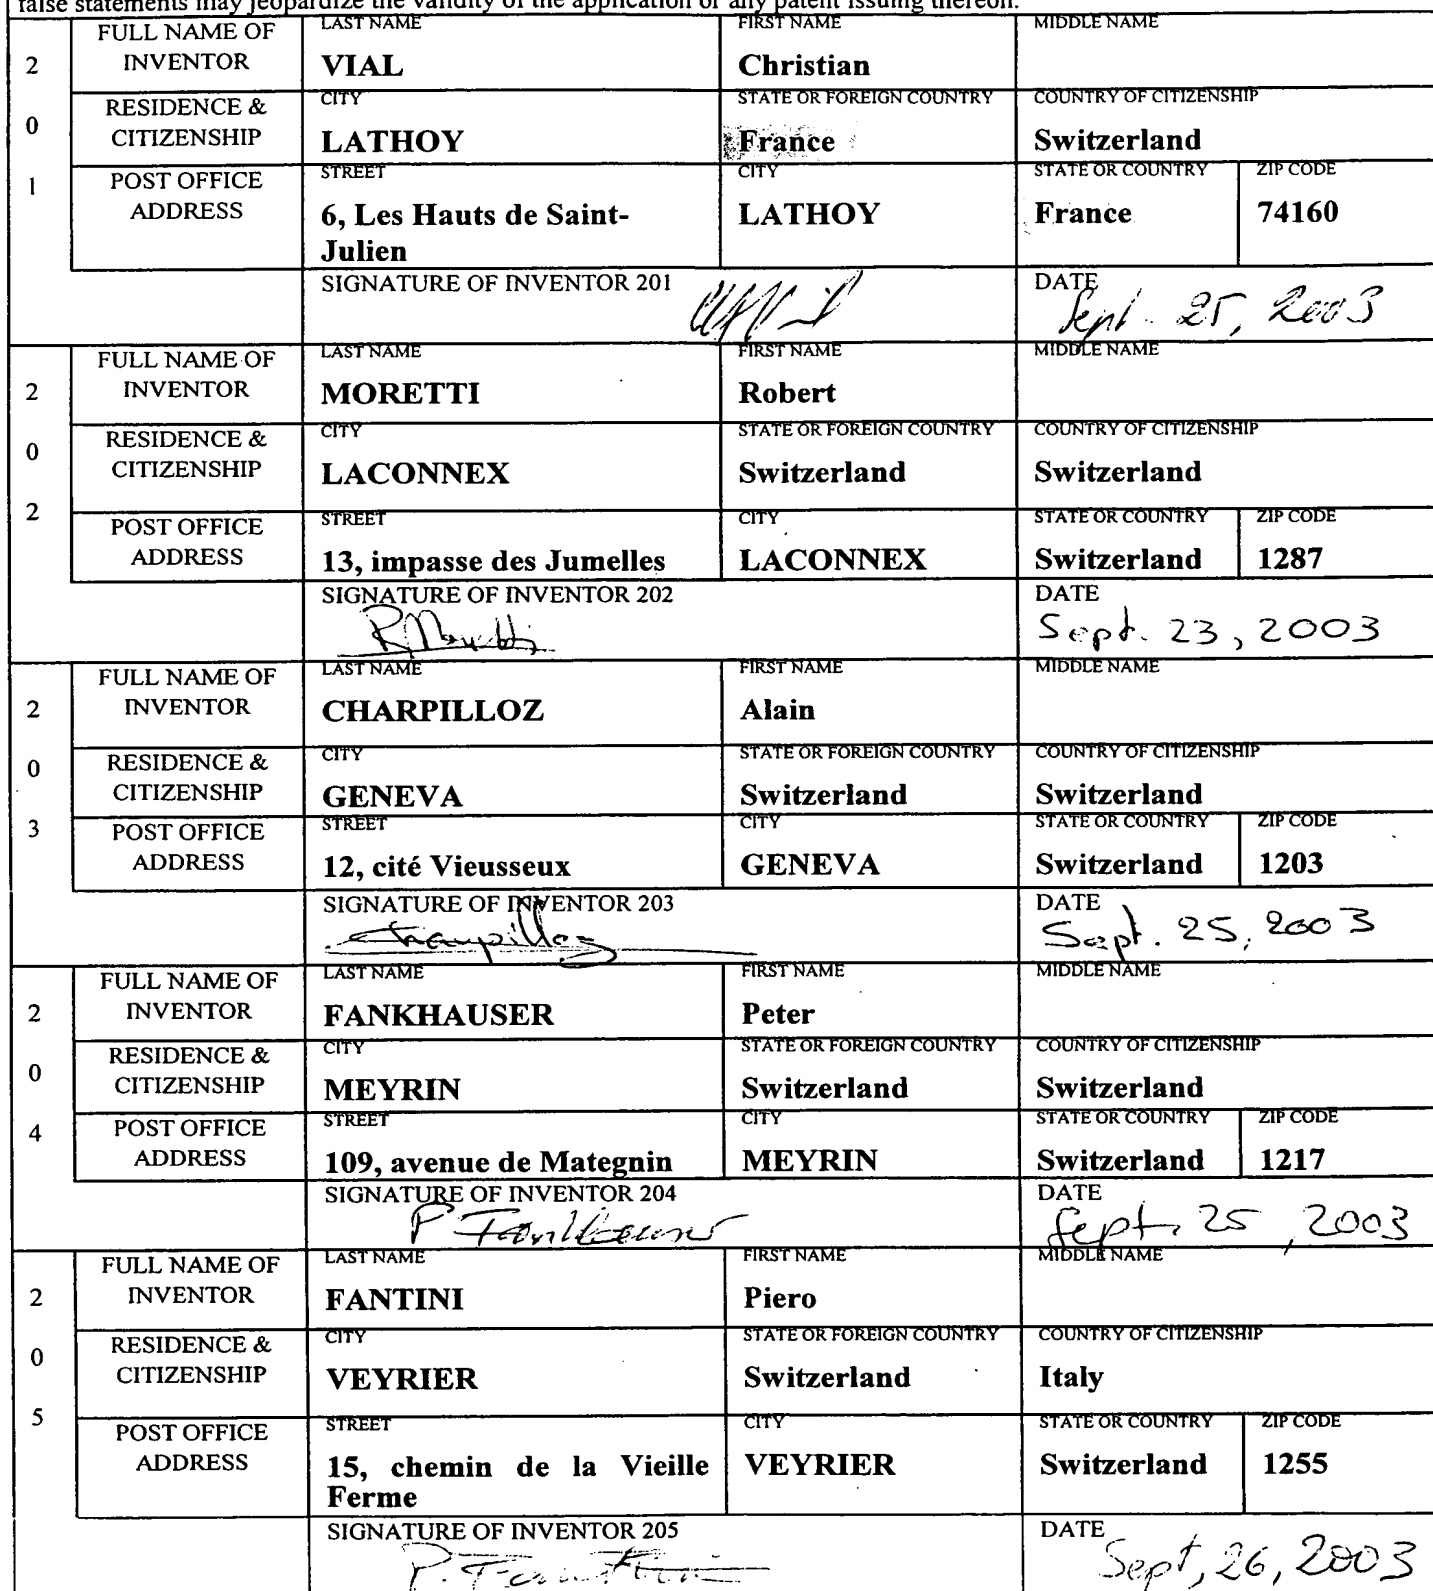 false statements may jeopardize the validity of the application or any patent issuing thereon.
2 0 1
FULL NAME OF INVENTOR
LAST NAME
VIAL
FIRST NAME
Christian
MIDDLE NAME
RESIDENCE & CITIZENSHIP
CITY
LATHOY
STATE OR FOREIGN COUNTRY
France
COUNTRY OF CITIZENSHIP
Switzerland
POST OFFICE ADDRESS
STREET
6, Les Hauts de Saint-
Julien
CITY
LATHOY
STATE OR COUNTRY
France
ZIP CODE
74160
SIGNATURE OF INVENTOR 201
DATE
Sept. 25, 2003
2 0 2
FULL NAME OF INVENTOR
LAST NAME
MORETTI
FIRST NAME
Robert
MIDDLE NAME
RESIDENCE & CITIZENSHIP
CITY
LACONNEX
STATE OR FOREIGN COUNTRY
Switzerland
COUNTRY OF CITIZENSHIP
Switzerland
POST OFFICE ADDRESS
STREET
13, impasse des Jumelles
CITY
LACONNEX
STATE OR COUNTRY
Switzerland
ZIP CODE
1287
SIGNATURE OF INVENTOR 202
R Moretti
DATE
Sept. 23, 2003
2 0 3
FULL NAME OF INVENTOR
LAST NAME
CHARPILLOZ
FIRST NAME
Alain
MIDDLE NAME
RESIDENCE & CITIZENSHIP
CITY
GENEVA
STATE OR FOREIGN COUNTRY
Switzerland
COUNTRY OF CITIZENSHIP
Switzerland
POST OFFICE ADDRESS
STREET
12, cité Vieusseux
CITY
GENEVA
STATE OR COUNTRY
Switzerland
ZIP CODE
1203
SIGNATURE OF INVENTOR 203
Charpilloz
DATE
Sept. 25, 2003
2 0 4
FULL NAME OF INVENTOR
LAST NAME
FANKHAUSER
FIRST NAME
Peter
MIDDLE NAME
RESIDENCE & CITIZENSHIP
CITY
MEYRIN
STATE OR FOREIGN COUNTRY
Switzerland
COUNTRY OF CITIZENSHIP
Switzerland
POST OFFICE ADDRESS
STREET
109, avenue de Mategnin
CITY
MEYRIN
STATE OR COUNTRY
Switzerland
ZIP CODE
1217
SIGNATURE OF INVENTOR 204
P Fankhauser
DATE
Sept. 25, 2003
2 0 5
FULL NAME OF INVENTOR
LAST NAME
FANTINI
FIRST NAME
Piero
MIDDLE NAME
RESIDENCE & CITIZENSHIP
CITY
VEYRIER
STATE OR FOREIGN COUNTRY
Switzerland
COUNTRY OF CITIZENSHIP
Italy
POST OFFICE ADDRESS
STREET
15, chemin de la Vieille
Ferme
CITY
VEYRIER
STATE OR COUNTRY
Switzerland
ZIP CODE
1255
SIGNATURE OF INVENTOR 205
P. Fantini
DATE
Sept, 26, 2003